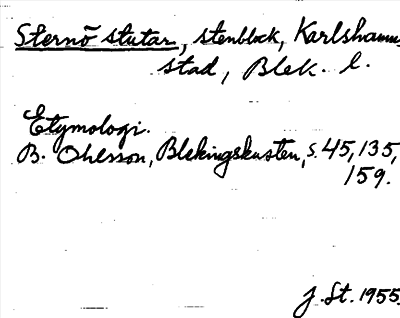 Sternö stutar, stenblock, Karlshamns
stad, Blek. l.
Etymologi.
B. Ohlsson, Blekingskusten, s. 45, 135,
159.
J. St. 1955.